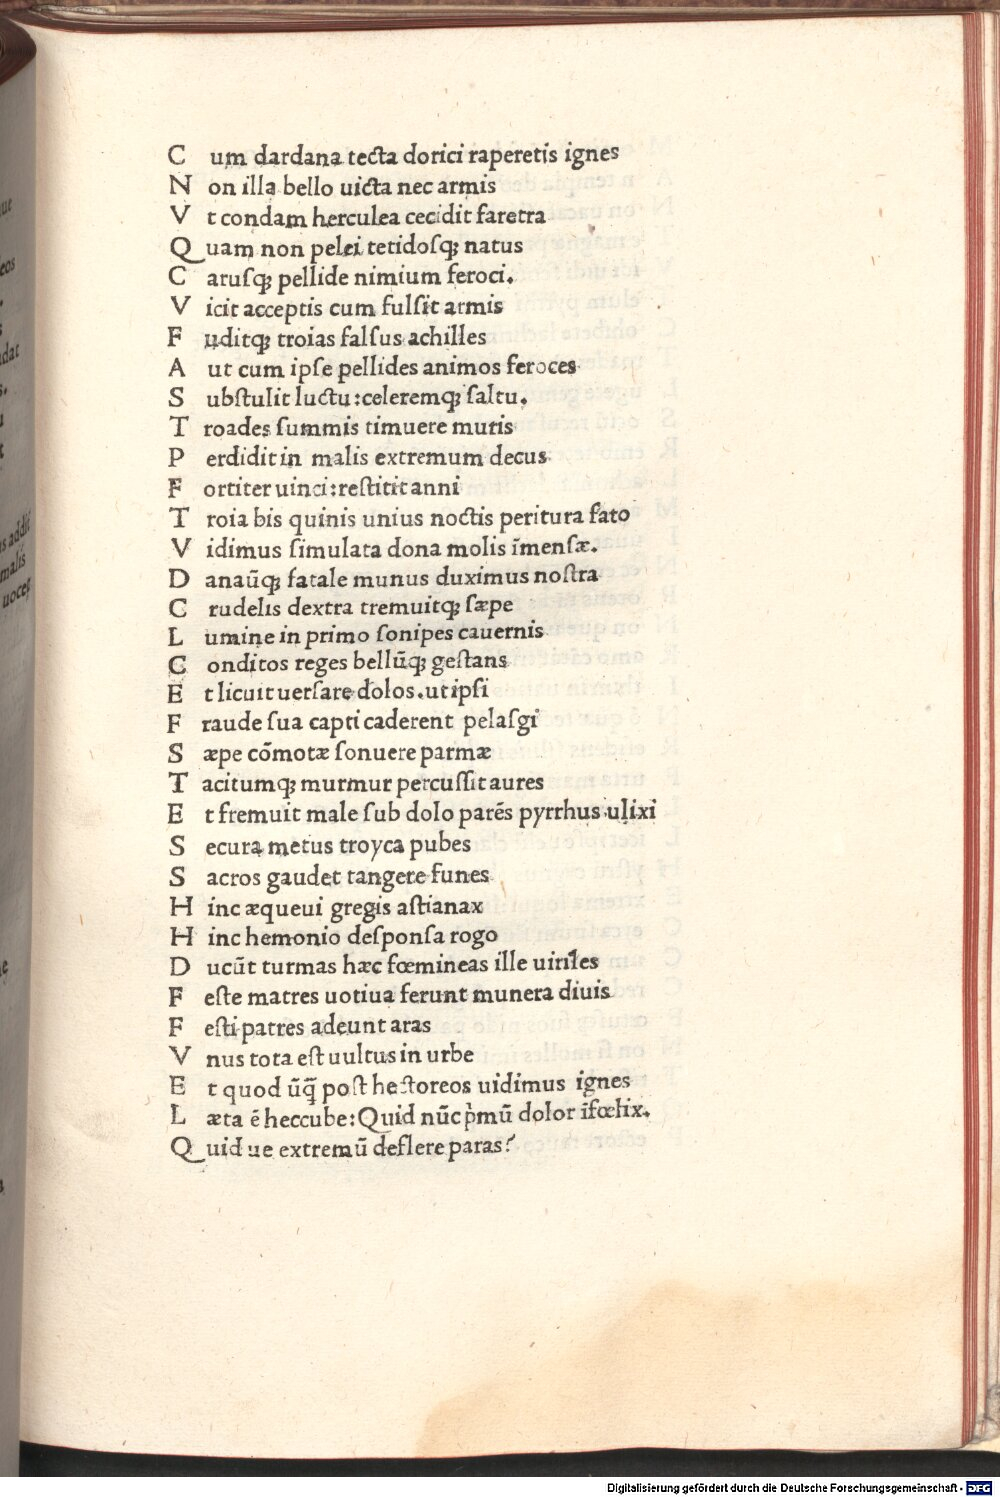 C um dardana tecta dorici raperetis ignes
N on illa bello uicta nec armis
V t condam herculea cecidit faretra
Q uam non pelei tetidoſqꝫ natus
C aruſqꝫ pellide nimium feroci.
V icit acceptis cum fulſit armis
F uditqꝫ troias falſus achilles
A ut cum ipſe pellides animos feroces
S ubſtulit luctu:celeremqꝫ ſaltu.
T roades ſummis timuere muris
P erdidit in malis extremum decus
F ortiter uinci:reſtitit anni
T roia bis quinis unius noctis peritura fato
V idimus ſimulata dona molis īmenſæ.
D anaūqꝫ fatale munus duximus noſtra
C rudelis dextra tremuitqꝫ ſæpe
L umine in primo ſonipes cauernis
C onditos reges bellūqꝫ geſtans
E t licuit uerſare dolos.ut ipſi
F raude ſua capti caderent pelaſgi
S æpe cōmotæ ſonuere parmæ
T acitumqꝫ murmur percuſſit aures
E t fremuit male ſub dolo parēs pyrrhus ulixi
S ecura metus troyca pubes
S acros gaudet tangere funes
H inc æqueui gregis aſtianax
H inc hemonio deſponſa rogo
D ucūt turmas hæc fœmineas ille uiriles
F eſte matres uotiua ferunt munera diuis
F eſti patres adeunt aras
V nus tota eſt uultus in urbe
E t quod ūq̄ poſt hectoreos uidimus ignes
L æta ē heccube:Quid nūc p̀mū dolor īfœlix.
Q uid ue extremū deflere paras?
Digitalisierung gefördert durch die Deutsche Forschungsgemeinschaft - DFG